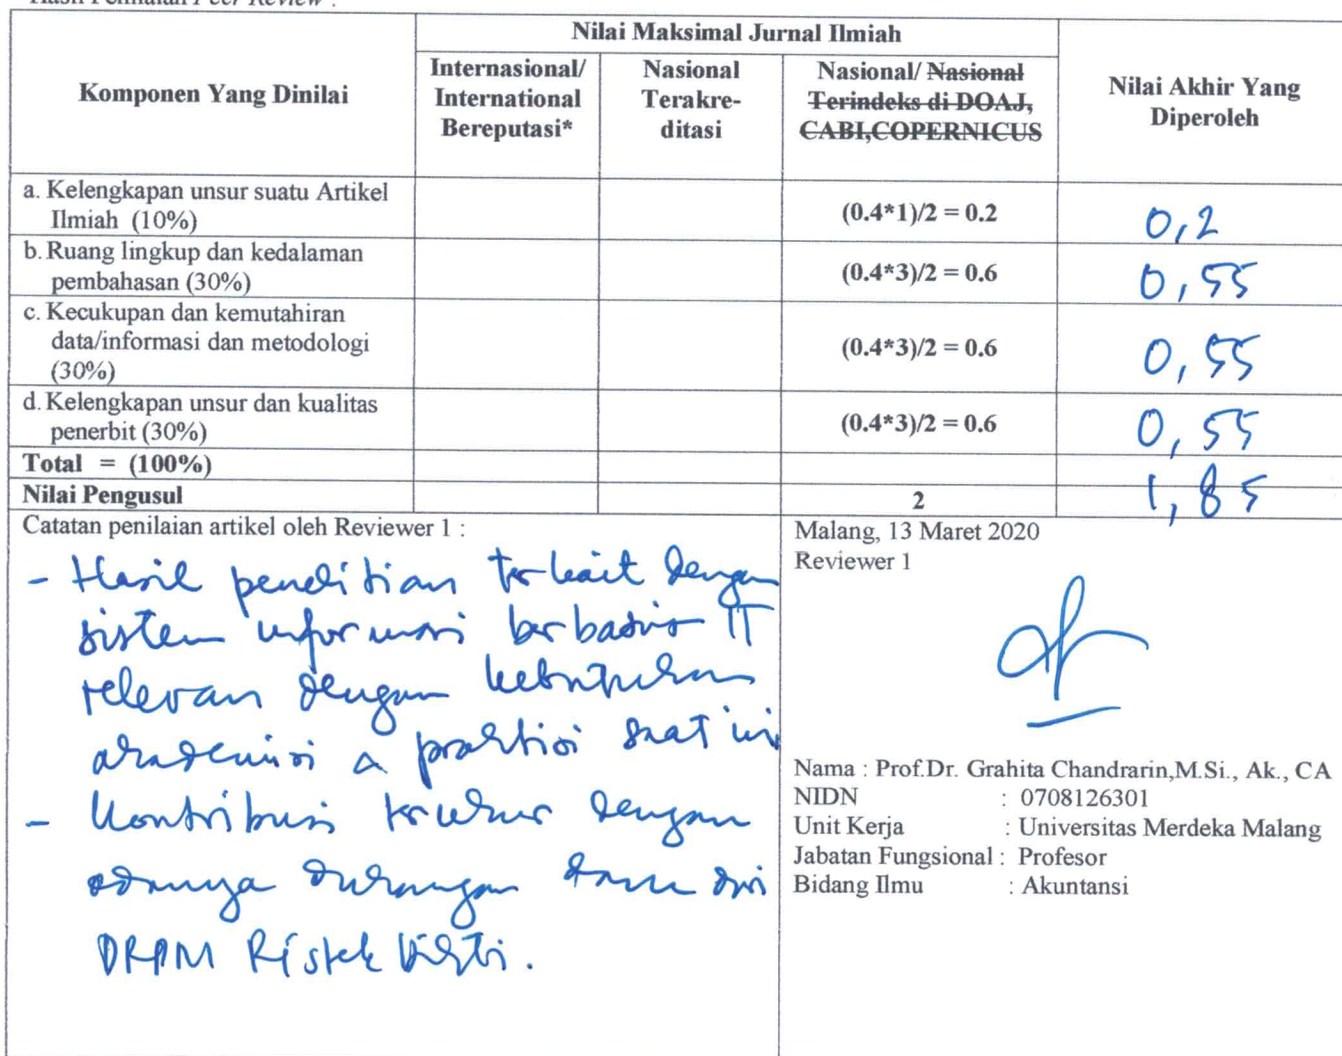 Hasil Penilaian Peer Review :
Nilai Maksimal Jurnal Ilmiah
Komponen Yang Dinilai
Internasional/
International
Bereputasi*
Nasional
Terakre-
ditasi
Nasional/ Nasional
Terindeks di DOAJ,
CABI,COPERNICUS
Nilai Akhir Yang
Diperoleh
a. Kelengkapan unsur suatu Artikel
Ilmiah (10%)
(0.4*1)/2 = 0.2
0,2
b. Ruang lingkup dan kedalaman
pembahasan (30%)
(0.4*3)/2 = 0.6
0,55
c. Kecukupan dan kemutahiran
data/informasi dan metodologi
(30%)
(0.4*3)/2 = 0.6
0,55
d. Kelengkapan unsur dan kualitas
penerbit (30%)
(0.4*3)/2 = 0.6
0,55
Total = (100%)
Nilai Pengusul
2
1,85
Catatan penilaian artikel oleh Reviewer 1 :
- Hasil penelitian terkait dengan
sistem informasi berbasis IT
relevan dengan kebutuhan
akademisi & praktisi saat ini
- Kontribusi terukur dengan
adanya dukungan dana dari
DRPM Ristek Dikti.
Malang, 13 Maret 2020
Reviewer 1
Nama : Prof.Dr. Grahita Chandrarin,M.Si., Ak., CA
NIDN : 0708126301
Unit Kerja : Universitas Merdeka Malang
Jabatan Fungsional : Profesor
Bidang Ilmu : Akuntansi